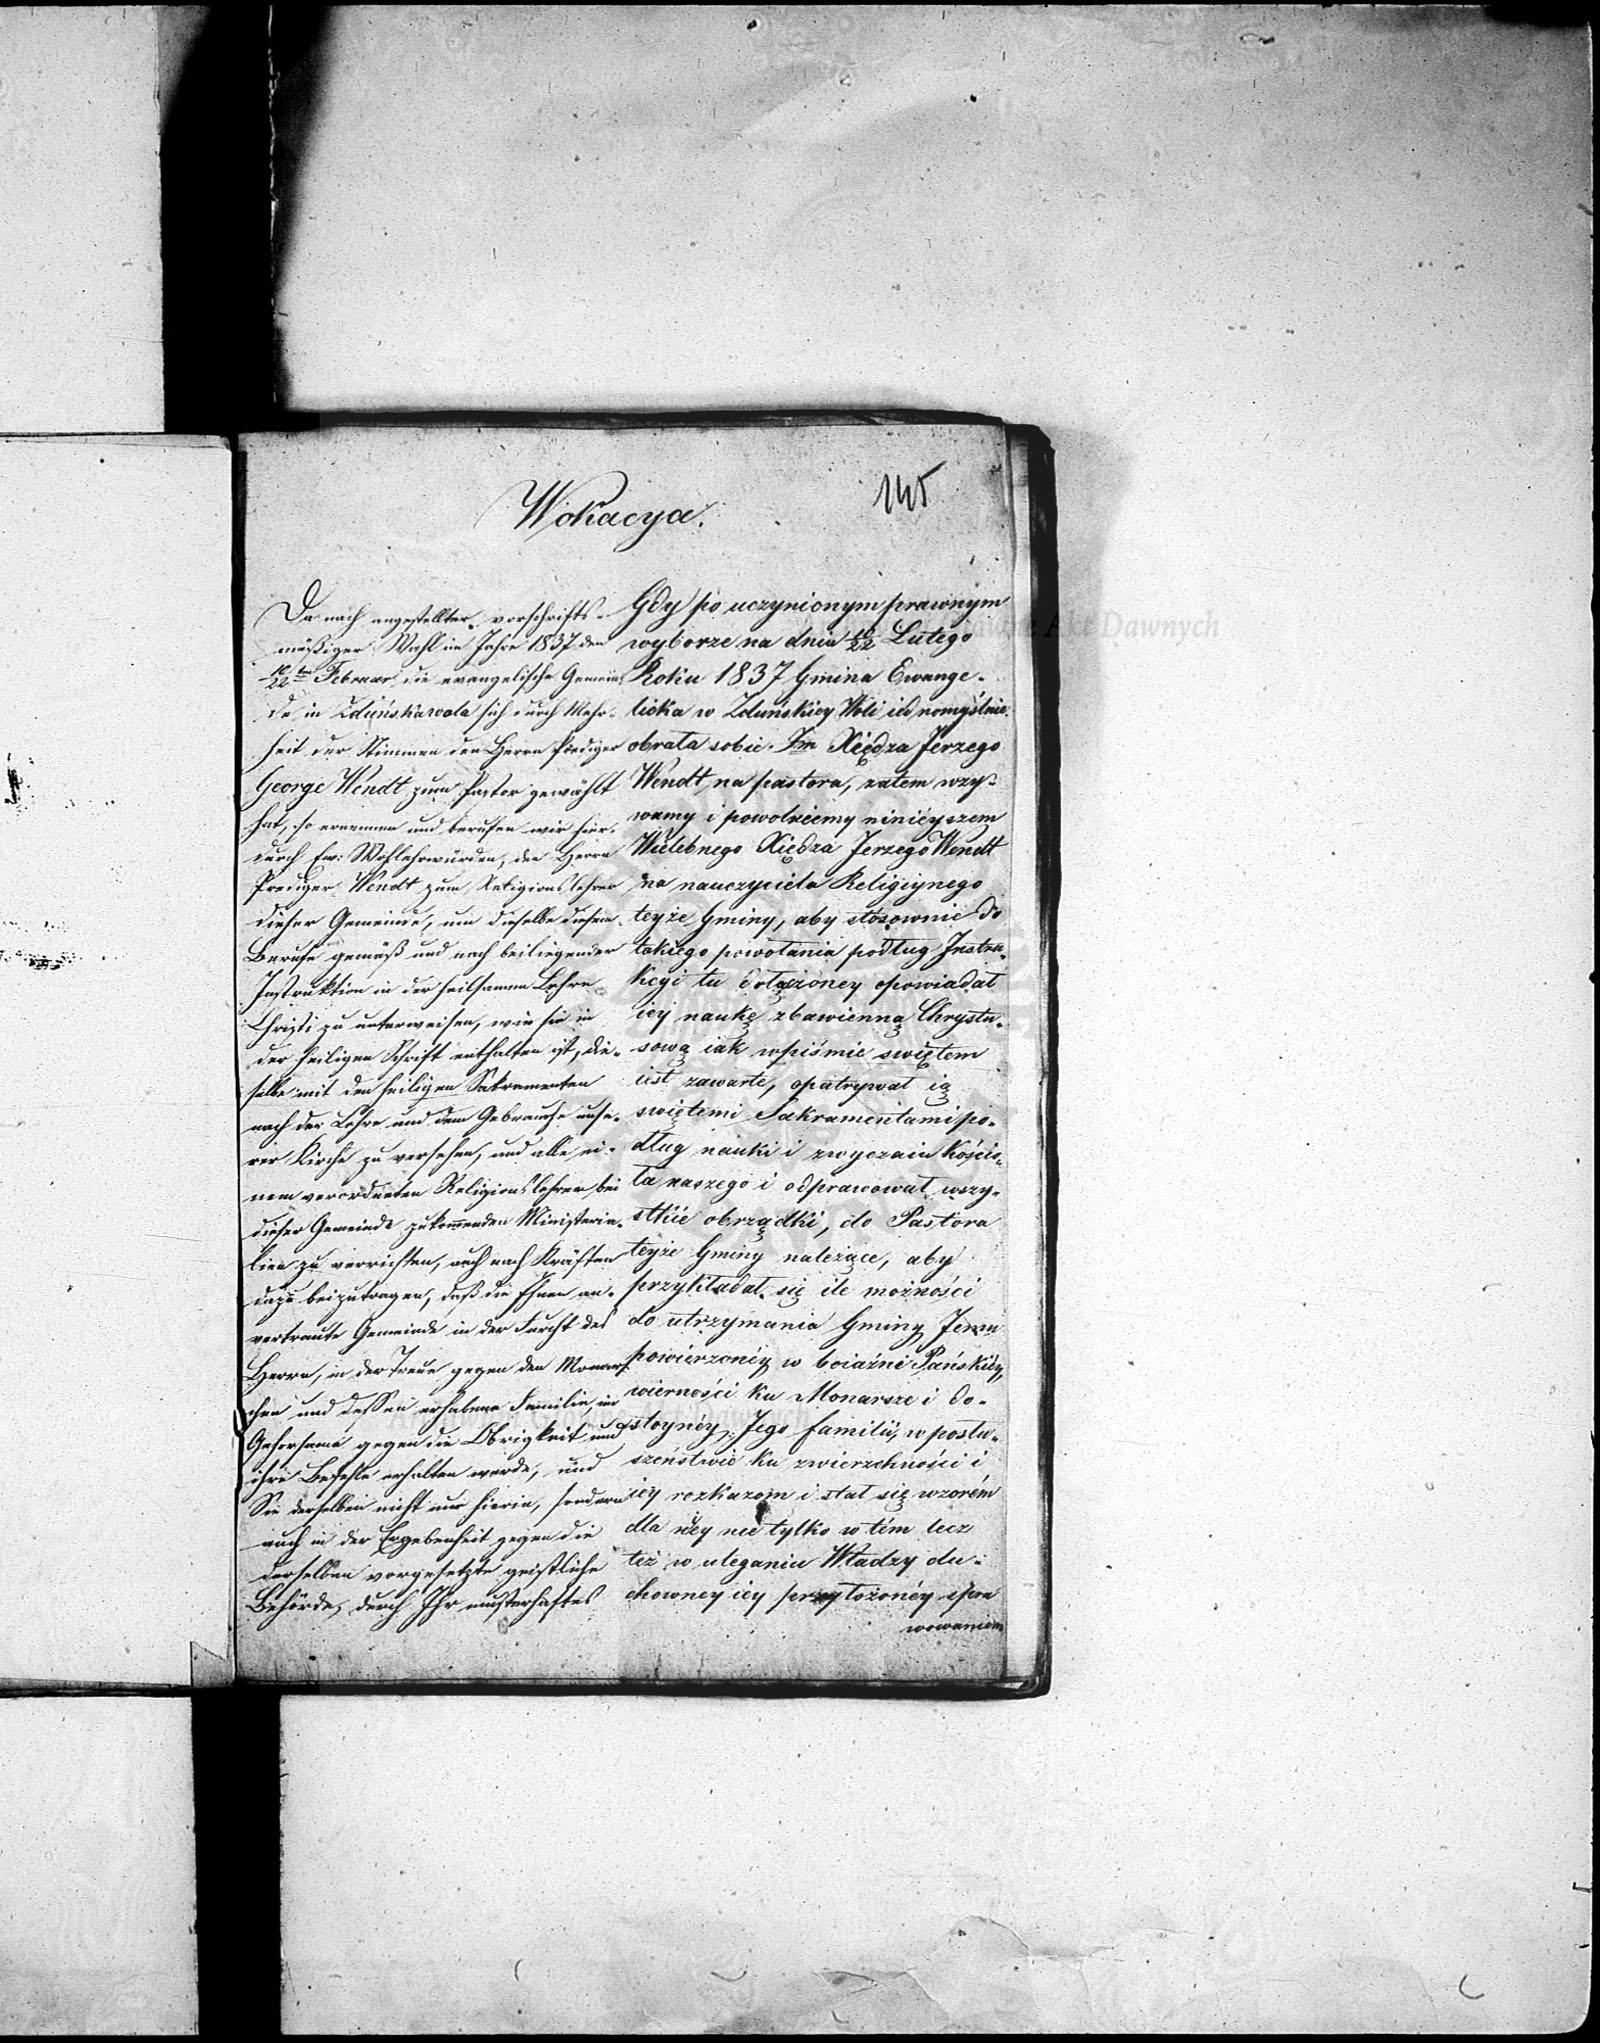 145
Wokacya.
Da nach angestellter vorschrifts-
mäßiger Wahl im Jahre 1837 den
10/22ten Februar die evangelische Gemein-
de in Zduńskawola sich durch Mehr-
heit der Stimmen den Herrn Prediger
George Wendt zum Pastor gewählt
hat, so ernennen und berufen wir hier-
durch Ew: Wohlehrwürden, den Herrn
Prediger Wendt zum Religionslehrer
dieser Gemeinde, um dieselbe diesem
Berufe gemäß und nach beiliegender
Instruktion in der heilsamen Lehre
Christi zu unterweisen, wie sie in
der heiligen Schrift enthalten ist, die-
selbe mit den heiligen Sakramenten
nach der Lehre und dem Gebrauche unse-
rer Kirche zu versehen, und alle ei-
nem verordneten Religionslehrer bei
dieser Gemeinde zukommenden Ministeria-
lien zu verrichten, auch nach Kräften
dazu beizutragen, daß die Ihnen an-
vertraute Gemeinde in der Furcht des
Herrn, in der Treue gegen den Monar-
chen und dessen erhabene Familie, im
Gehorsame gegen die Obrigkeit und
ihre Befehle erhalten werde, und
Sie derselben nicht nur hierin, sondern
auch in der Ergebenheit gegen die
derselben vorgesetzte geistliche
Behörde, durch Ihr musterhaftes
Gdy po uczynionym prawnym
wyborze na dniu 10/22 Lutego
Roku 1837 Gmina Ewange-
licka w Zduńskiey Woli iednomyślnie
obrała sobie Jm Xiędza Jerzego
Wendt na pastora, zatem wzy-
wamy i powołuiemy ninieyszem
Wielebnego Xiędza Jerzego Wendt
na nauczyciela Religiynego
teyże Gminy, aby stósownie do
takiego powołania podług Instru-
kcyi tu dołączoney opowiadał
iey naukę zbawienną Chrystu-
sową iak w piśmie swiętem
iest zawarte, opatrywał ią
swiętemi Sakramentami po-
dług nauki i zwyczaiu Kościo-
ła naszego i odprawował wszy-
stkie obrządki, do Pastora
teyże Gminy należące, aby
przykładał się ile możności
do utrzymania Gminy Jemu
powierzonéy w boiaźni Pańskiéy,
wierności ku Monarsze i do-
stoynéy Jego familii, w posłu-
szeństwie ku zwierzchności i
iey rozkazom i stał się wzorém
dla niey nie tylko w tém lecz
też w uleganiu Władzy du-
chowney iey przełożonéy spra
wowaniem